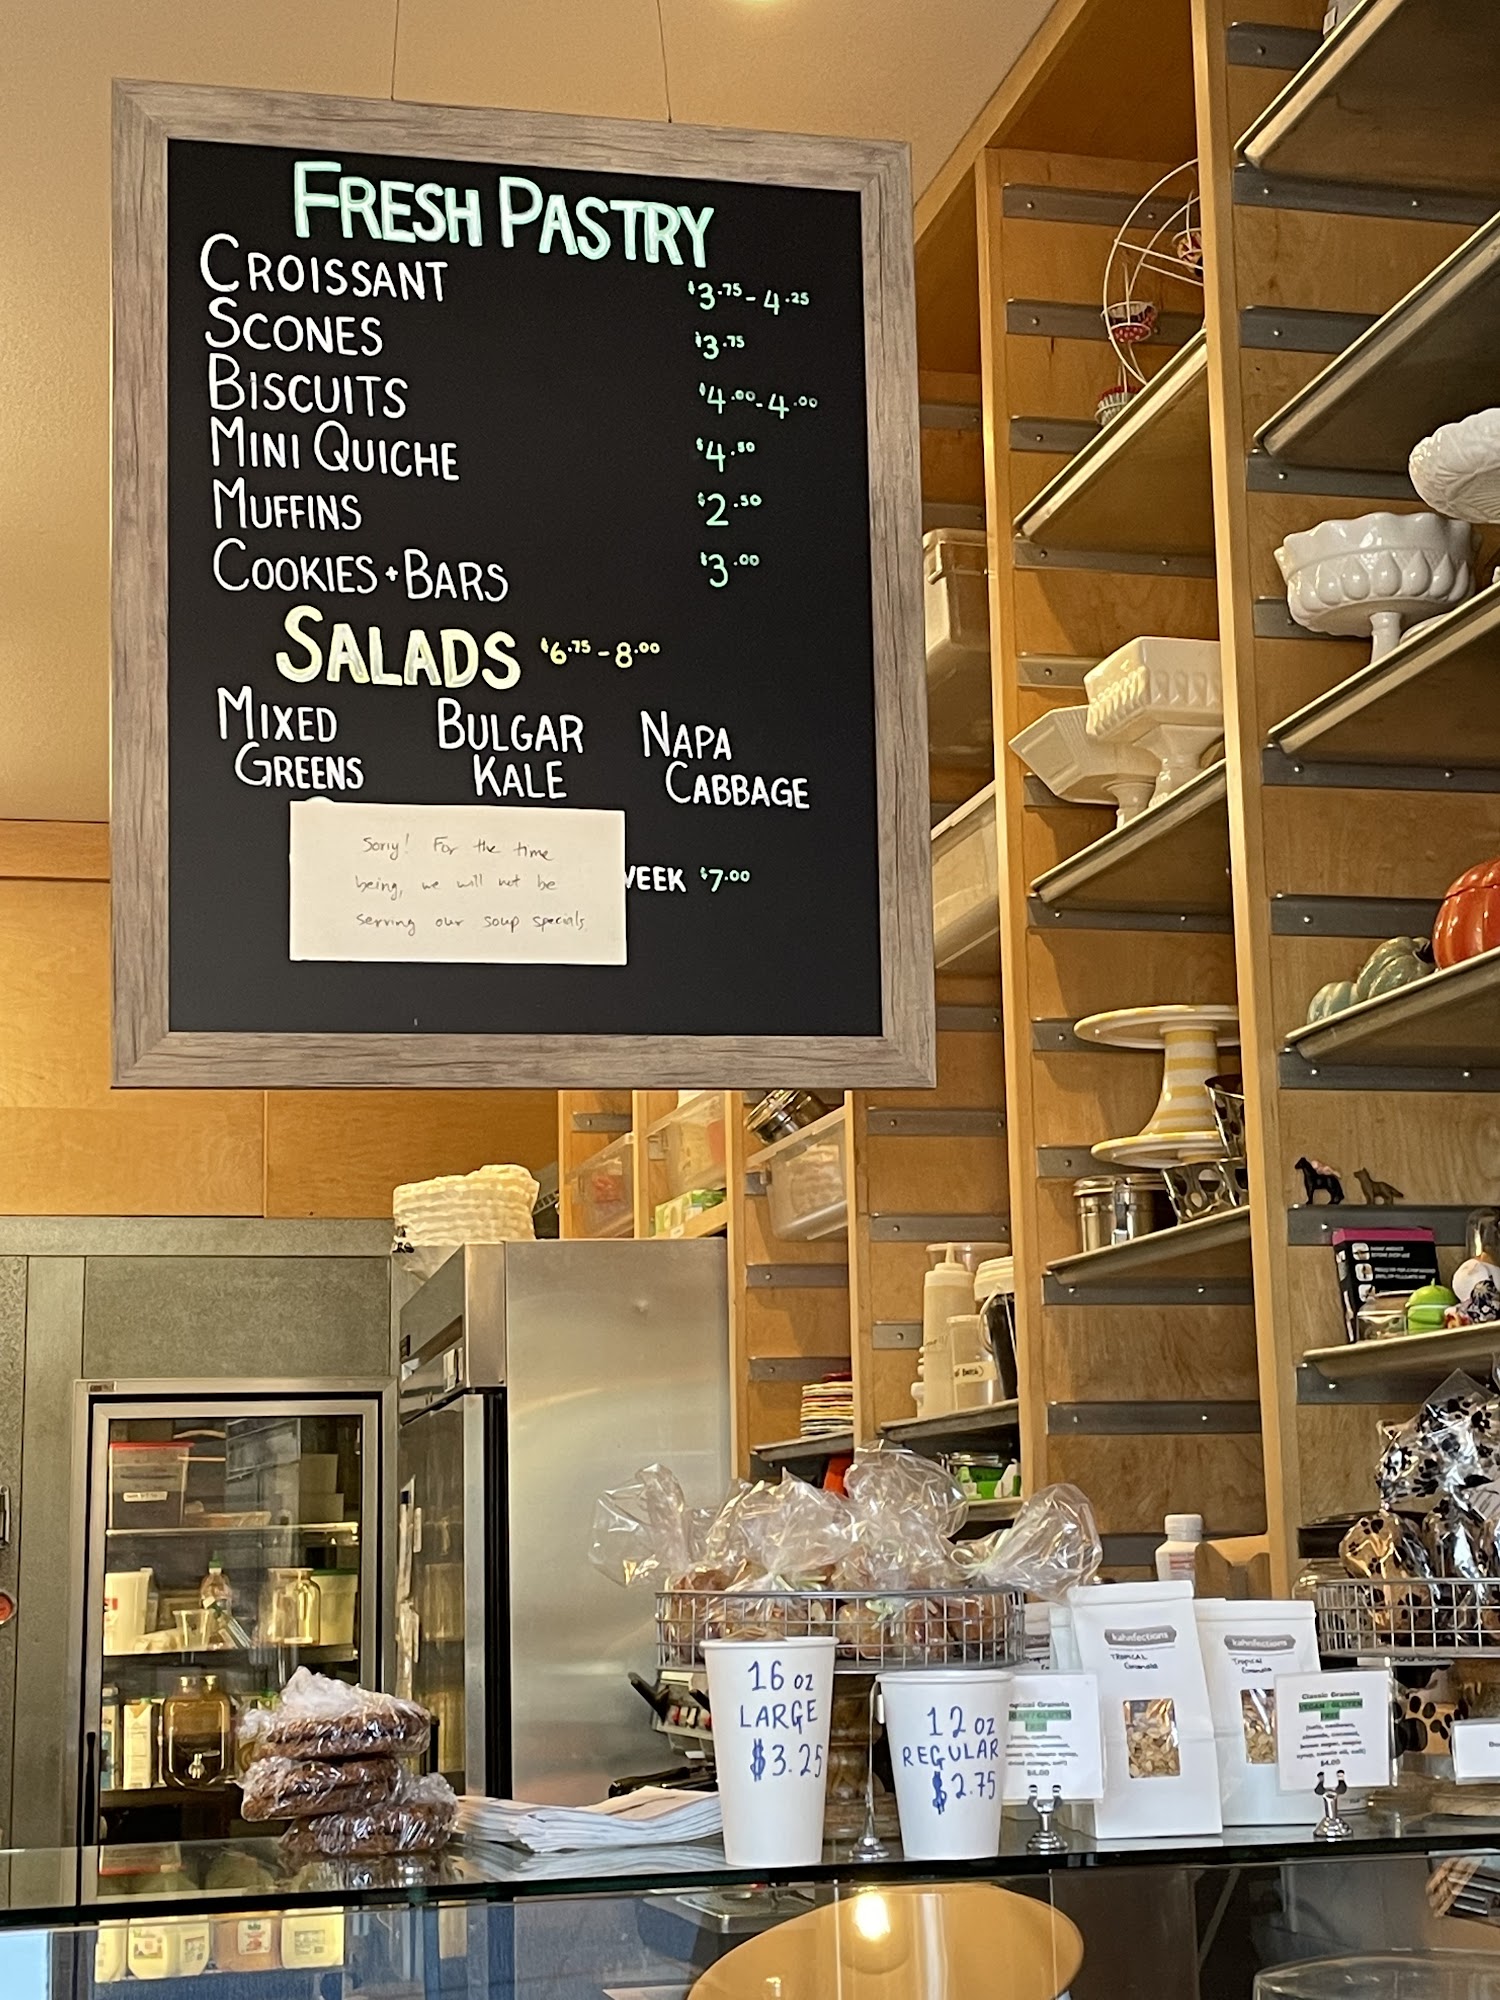 FRESH PASTRY
CROISSANT $3.75-4.25
SCONES $3.75
BISCUITS $4.00-4.00
MINI QUICHE $4.50
MUFFINS $2.50
COOKIES + BARS $3.00
SALADS $6.75-8.00
MIXED GREENS
BULGAR KALE
NAPA CABBAGE
Sorry! For the time
being, we will not be
serving our soup specials.
WEEK $7.00
16 oz
LARGE
$3.25
12 oz
REGULAR
$2.75
kahnfections
TROPICAL
Granola
kahnfections
Tropical
Granola
Granola
FREE
$4.00
Classic Granola
VEGAN / GLUTEN
FREE
$4.00